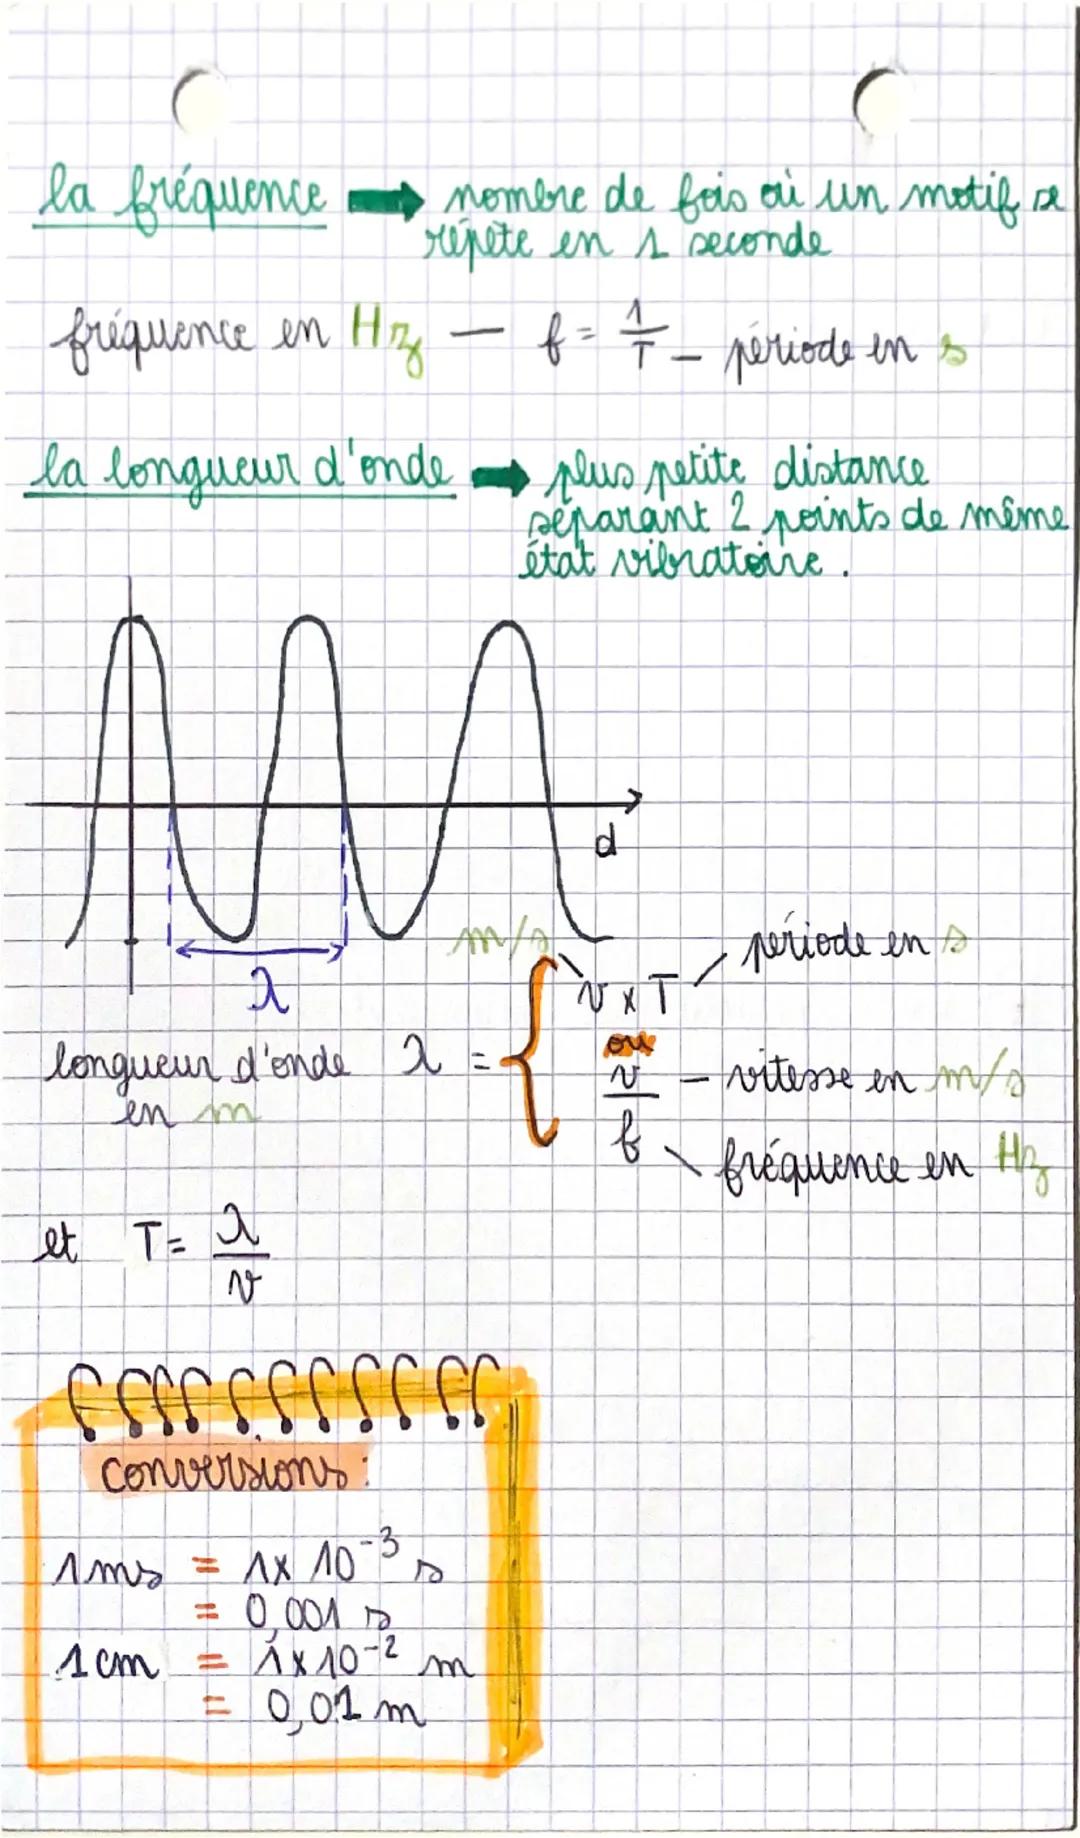 la fréquence → nombre de fois où un motif se
répète en 1 seconde
fréquence en Hz — f = 1/T — période en s
la longueur d'onde → plus petite distance
séparant 2 points de même
état vibratoire.
d
λ
m/s
v x T
période en s
ou
longueur d'onde λ =
en m
v/f
vitesse en m/s
fréquence en Hz
et T = λ/v
conversions :
1 ms = 1x 10⁻³ s
= 0,001 s
1 cm = 1x10⁻² m
= 0,01 m